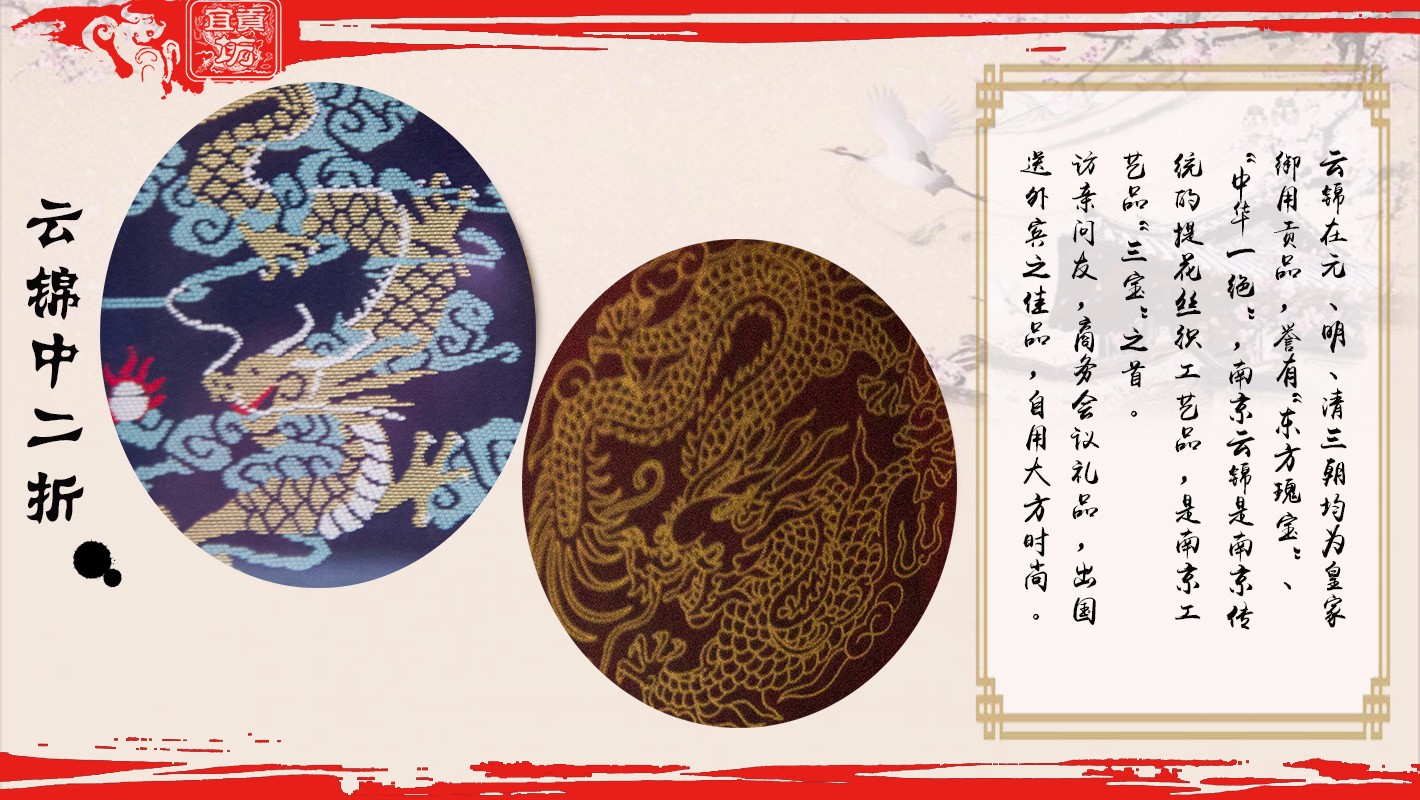 宜貢坊
云锦中二折
云锦在元、明、清三朝均为皇家
御用贡品，誉有“东方瑰宝”、
“中华一绝”，南京云锦是南京传
统的提花丝织工艺品，是南京工
艺品“三宝”之首。
访亲问友，商务会议礼品，出国
送外宾之佳品，自用大方时尚。